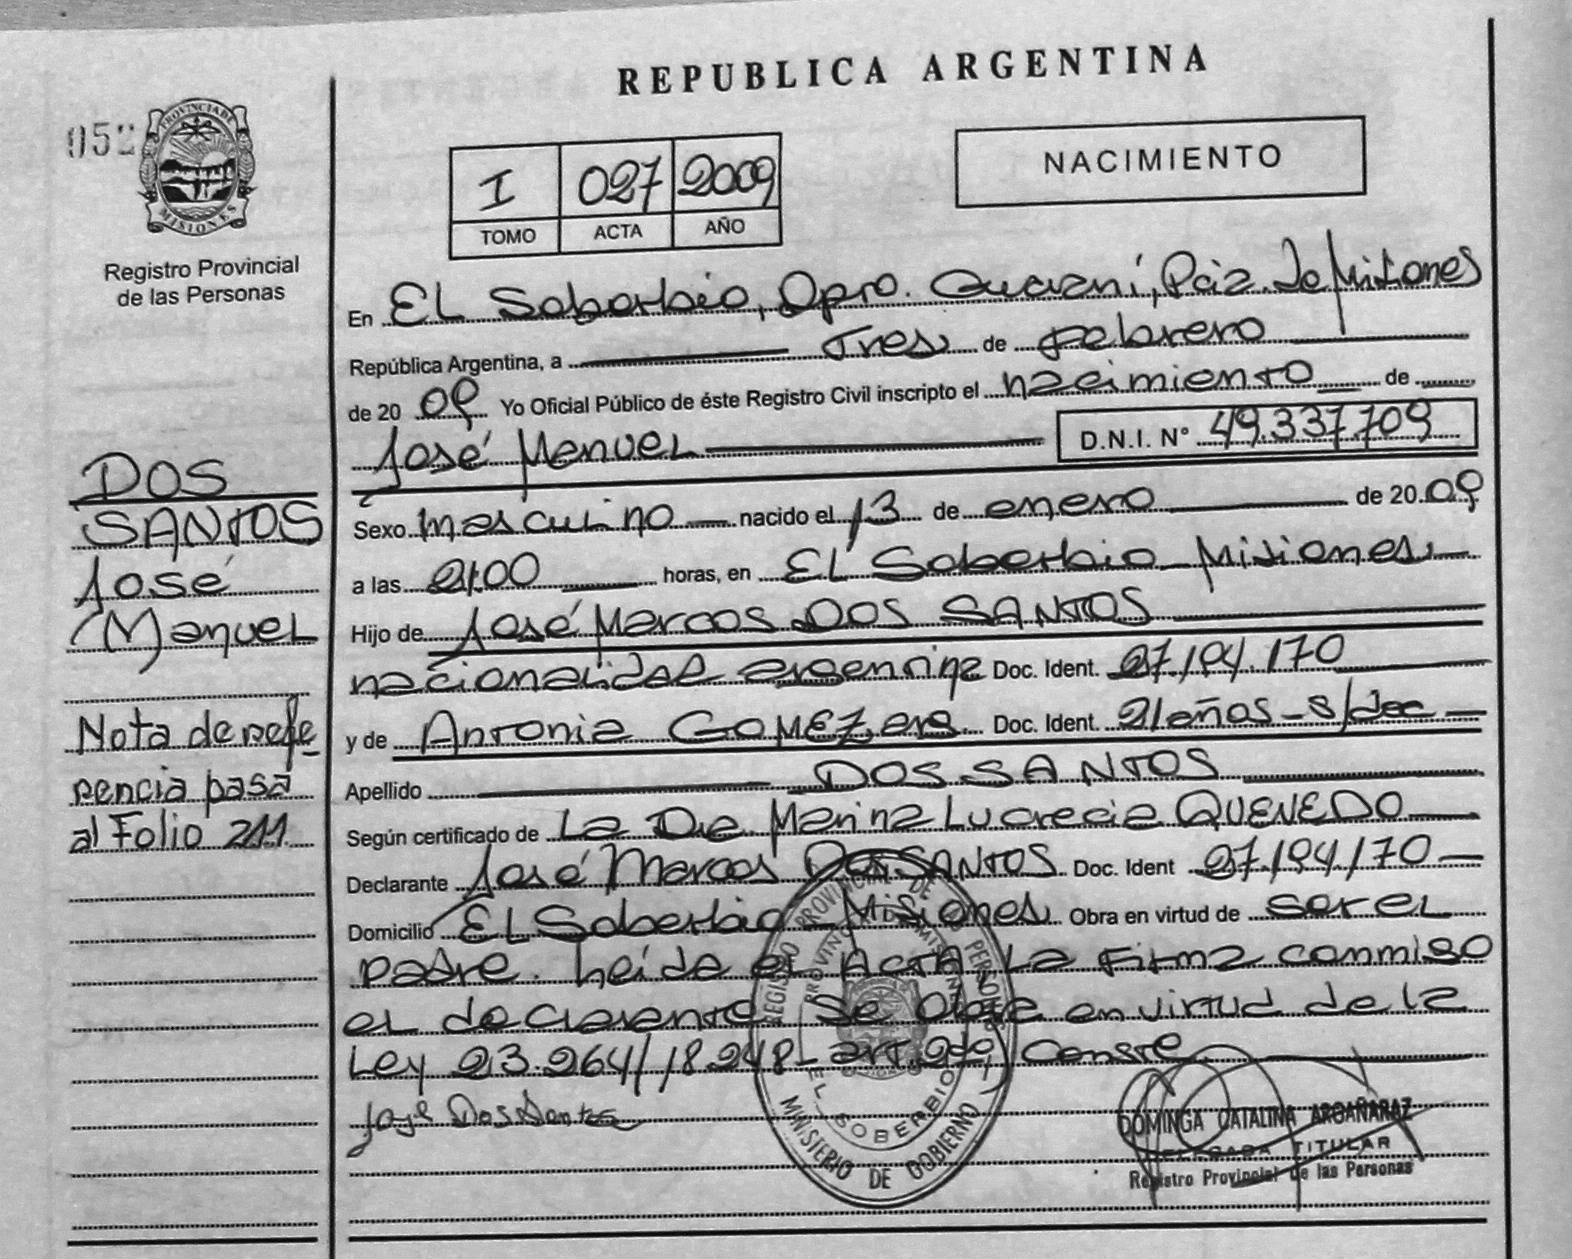 REPUBLICA ARGENTINA
052
PROVINCIA DE MISIONES
Registro Provincial
de las Personas
I 027 2009
TOMO ACTA AÑO
NACIMIENTO
En EL Soberbio, Dpto. Guaraní, Pcia. de Misiones
República Argentina, a Tres de Febrero
de 20 09 Yo Oficial Público de éste Registro Civil inscripto el nacimiento de
José Manuel D.N.I. N° 49.337.709
Sexo masculino nacido el 13 de enero de 20 09
a las 21.00 horas, en EL Soberbio Misiones
Hijo de José Marcos DOS SANTOS
nacionalidad argentina Doc. Ident. 27.194.170
y de Antonia GOMEZ, arg. Doc. Ident. 21 años - s/doc
Apellido DOS SANTOS
Según certificado de La Dra Marina Lucrecia QUEVEDO
Declarante José Marcos DOS SANTOS Doc. Ident 27.194.170
Domicilio EL Soberbio Misiones Obra en virtud de ser el
padre. Leída el ACTA La Firma conmigo
el declarante Se Obra en virtud de la
Ley 23.264/18.248 - art. 2do, Conste
José Dos Santos
DOS
SANTOS
José
Manuel
Nota de refe
rencia pasa
al Folio 211
REGISTRO PROVINCIAL DE LAS PERSONAS
PROVINCIA DE MISIONES
EL SOBERBIO
MINISTERIO DE GOBIERNO
DOMINGA CATALINA ARGAÑARAZ
DELEGADA TITULAR
Registro Provincial de las Personas